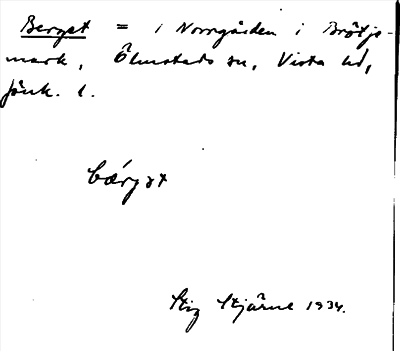 Berget = i Norrgården i Brötjemark, Ölmstads sn, Vista hd,
Jönk. l.
bærgət
Stig Stjärne 1934.